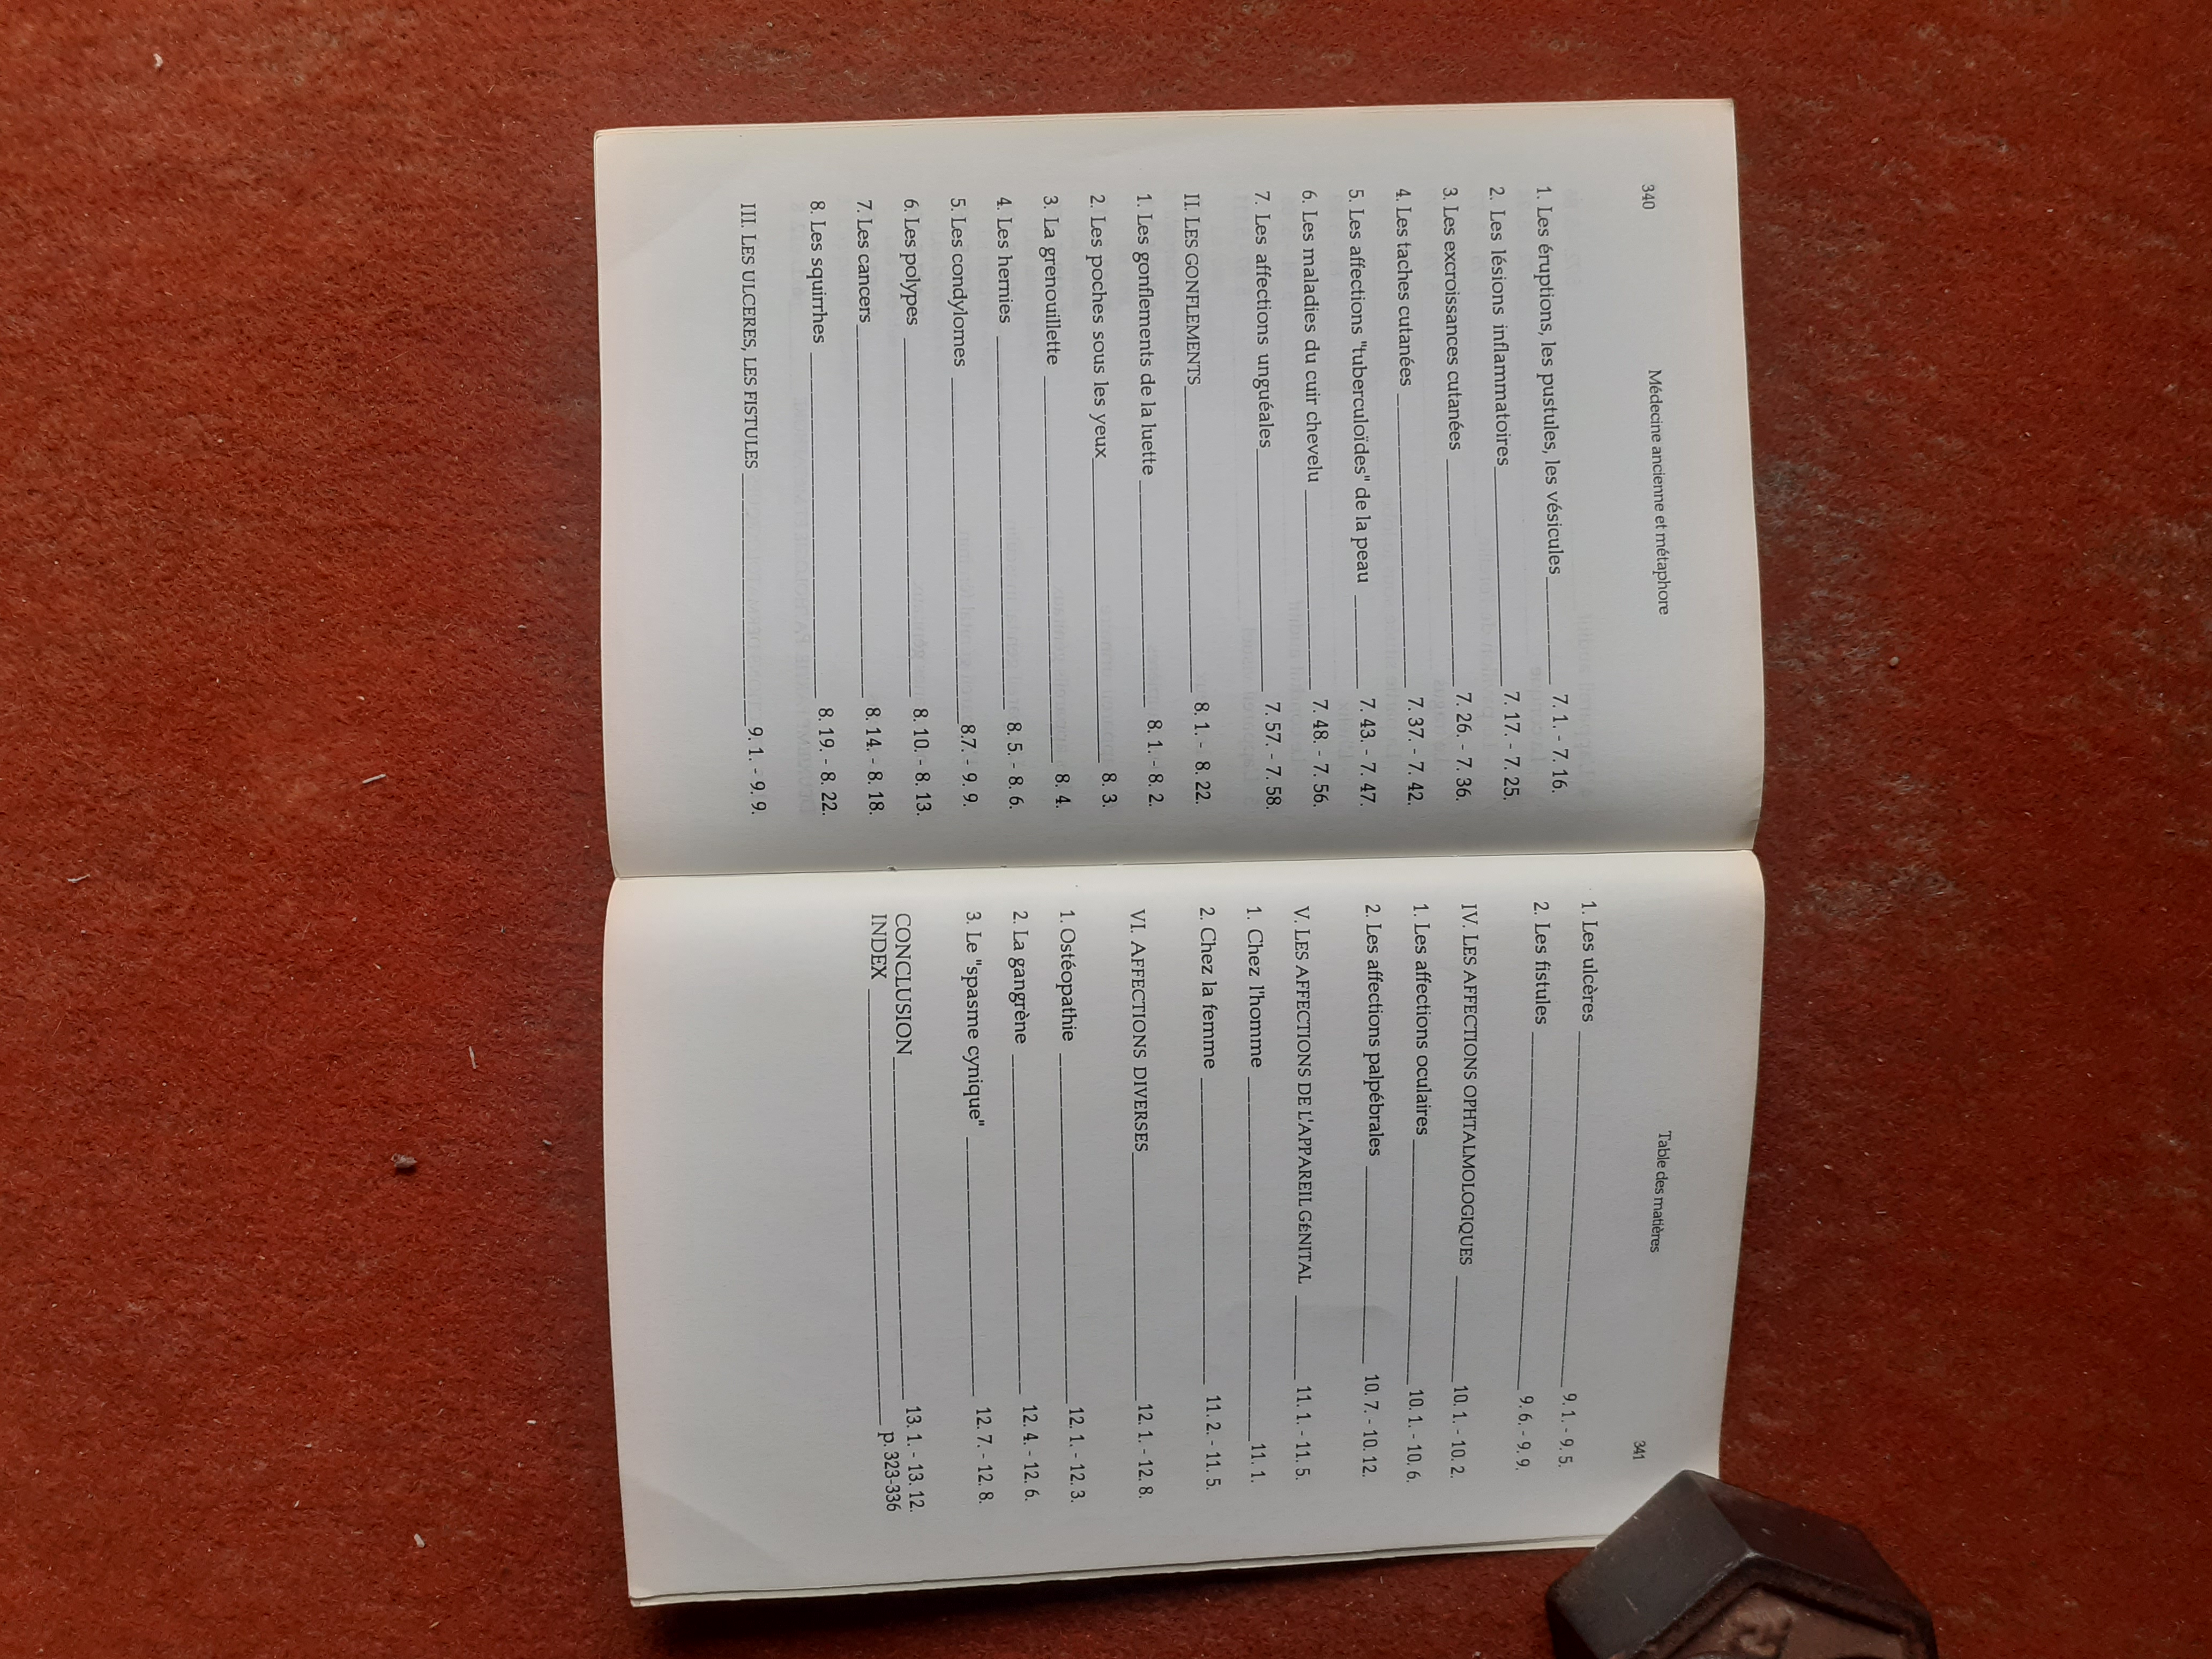 340
Médecine ancienne et métaphore
1. Les éruptions, les pustules, les vésicules__________ 7. 1. - 7. 16.
2. Les lésions inflammatoires__________ 7. 17. - 7. 25.
3. Les excroissances cutanées __________ 7. 26. - 7. 36.
4. Les taches cutanées __________ 7. 37. - 7. 42.
5. Les affections "tuberculoïdes" de la peau __________ 7. 43. - 7. 47.
6. Les maladies du cuir chevelu __________ 7. 48. - 7. 56.
7. Les affections unguéales__________ 7. 57. - 7. 58.
II. LES GONFLEMENTS__________ 8. 1. - 8. 22.
1. Les gonflements de la luette __________ 8. 1. - 8. 2.
2. Les poches sous les yeux__________ 8. 3.
3. La grenouillette __________ 8. 4.
4. Les hernies __________ 8. 5. - 8. 6.
5. Les condylomes __________8.7. - 9. 9.
6. Les polypes __________ 8. 10. - 8. 13.
7. Les cancers__________ 8. 14. - 8. 18.
8. Les squirrhes __________ 8. 19. - 8. 22.
III. LES ULCERES, LES FISTULES __________9. 1. - 9. 9.
Table des matières
341
1. Les ulcères __________ 9. 1. - 9. 5.
2. Les fistules __________ 9. 6. - 9. 9.
IV. LES AFFECTIONS OPHTALMOLOGIQUES __________10. 1. - 10. 2.
1. Les affections oculaires__________ 10. 1. - 10. 6.
2. Les affections palpébrales __________ 10. 7. - 10. 12.
V. LES AFFECTIONS DE L'APPAREIL GÉNITAL __________ 11. 1. - 11. 5.
1. Chez l'homme __________11. 1.
2. Chez la femme __________ 11. 2. - 11. 5.
VI. AFFECTIONS DIVERSES__________12. 1. - 12. 8.
1. Ostéopathie __________12. 1. - 12. 3.
2. La gangrène __________ 12. 4. - 12. 6.
3. Le "spasme cynique" __________ 12. 7. - 12. 8.
CONCLUSION__________ 13. 1. - 13. 12.
INDEX __________ p. 323-336